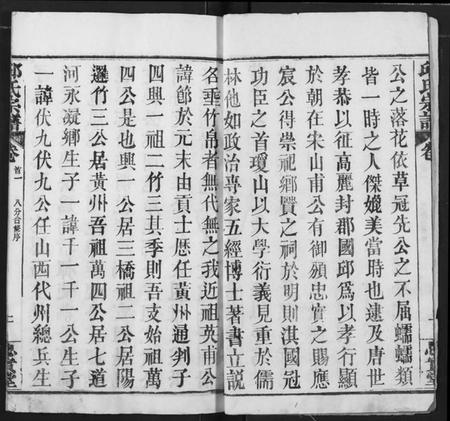 邱氏宗譜
卷
公之落花依草冠先公之不屈蠕蠕類
皆一時之人傑媲美當時也逮及唐世
孝恭以征高麗封郡國邱爲以孝行顯
於朝在宋山甫公有御頒忠實之賜應
宸公得崇祀鄉賢之祠於明則淇國冠
功臣之首瓊山以大學衍義見重於儒
林他如政治專家五經博士著書立說
名垂竹帛者無代無之我近祖英甫公
諱節於元末由貢士歷任黃州通判子
四興一祖二竹三其季則吾支始祖萬
四公是也興一公居三橋祖二公居陽
邏竹三公居黃州吾祖萬四公居七道
河永凝鄉生子一諱千一千一公生子
一諱伏九伏九公任山西代州總兵生
邱氏宗譜
卷
首一
八分合修序
上
忠實堂